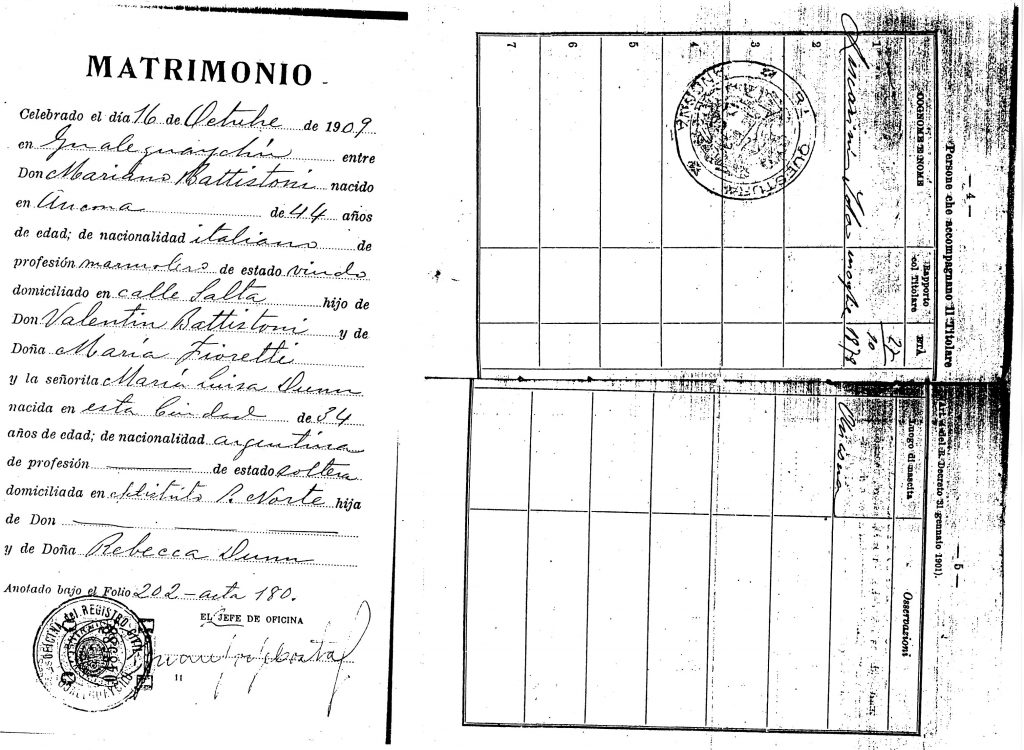 MATRIMONIO
Celebrado el día 16 de Octubre de 1909
en Gualeguaychú entre
Don Mariano Battistoni nacido
en Ancona de 44 años
de edad; de nacionalidad italiano de
profesión marmolero de estado viudo
domiciliado en calle Salta hijo de
Don Valentin Battistoni y de
Doña María Fioretti
y la señorita María Luisa Dunn
nacida en esta Ciudad de 34
años de edad; de nacionalidad argentina
de profesión de estado soltera
domiciliada en distrito P. Norte hija
de Don
y de Doña Rebecca Dunn
Anotado bajo el Folio 202 - acta 180.
EL JEFE DE OFICINA
OFICINA del REGISTRO CIVIL
GUALEGUAYCHU
11
— 4 —
Persone che accompagnano il Titolare
COGNOME E NOME
Rapporto col Titolare
ETÀ
1
Ida moglie 1878
2
3
4
5
6
7
R.A QUESTURA
ANCONA
— 5 —
Decreto 31 gennaio 1901).
Luogo di nascita
Osservazioni
Ancona